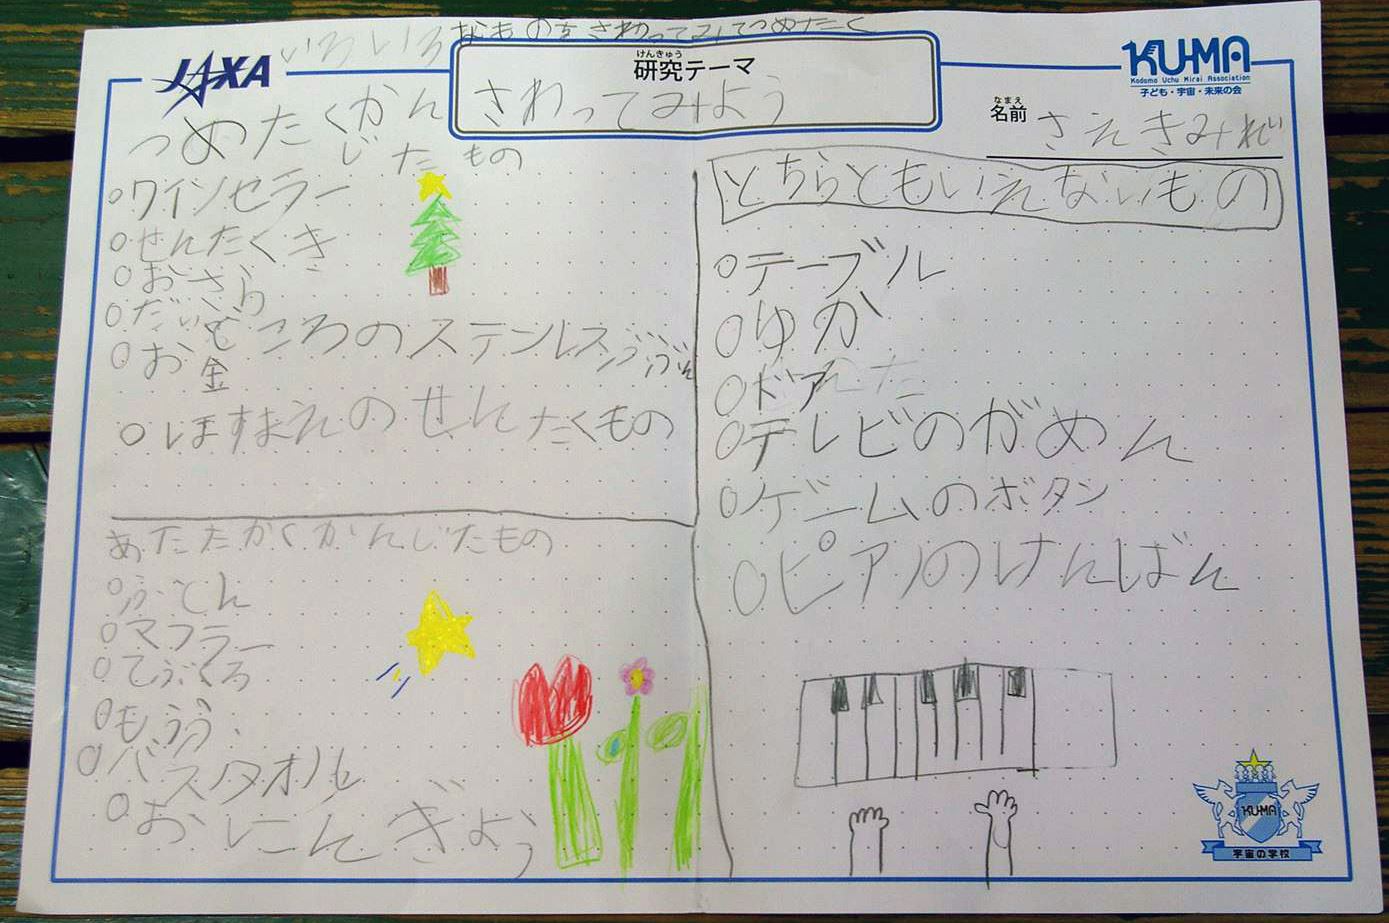 いろいろなものをさわってみてつめたく
JAXA
けんきゅう
研究テーマ
さわってみよう
KU-MA
Kodomo Uchu Mirai Association
子ども・宇宙・未来の会
なまえ
名前 さえきみれ
つめたくかん
じたもの
○ワインセラー
○せんたくき
○おさら
○だいどころのステンレスぶぶん
○お金
○ほすまえのせんたくもの
あたたかくかんじたもの
○ふとん
○マフラー
○てぶくろ
○もうふ
○バスタオル
○おにんぎょう
どちらともいえないもの
○テーブル
○ゆか
○ドア
○テレビのがめん
○ゲームのボタン
○ピアノのけんばん
KU-MA
宇宙の学校